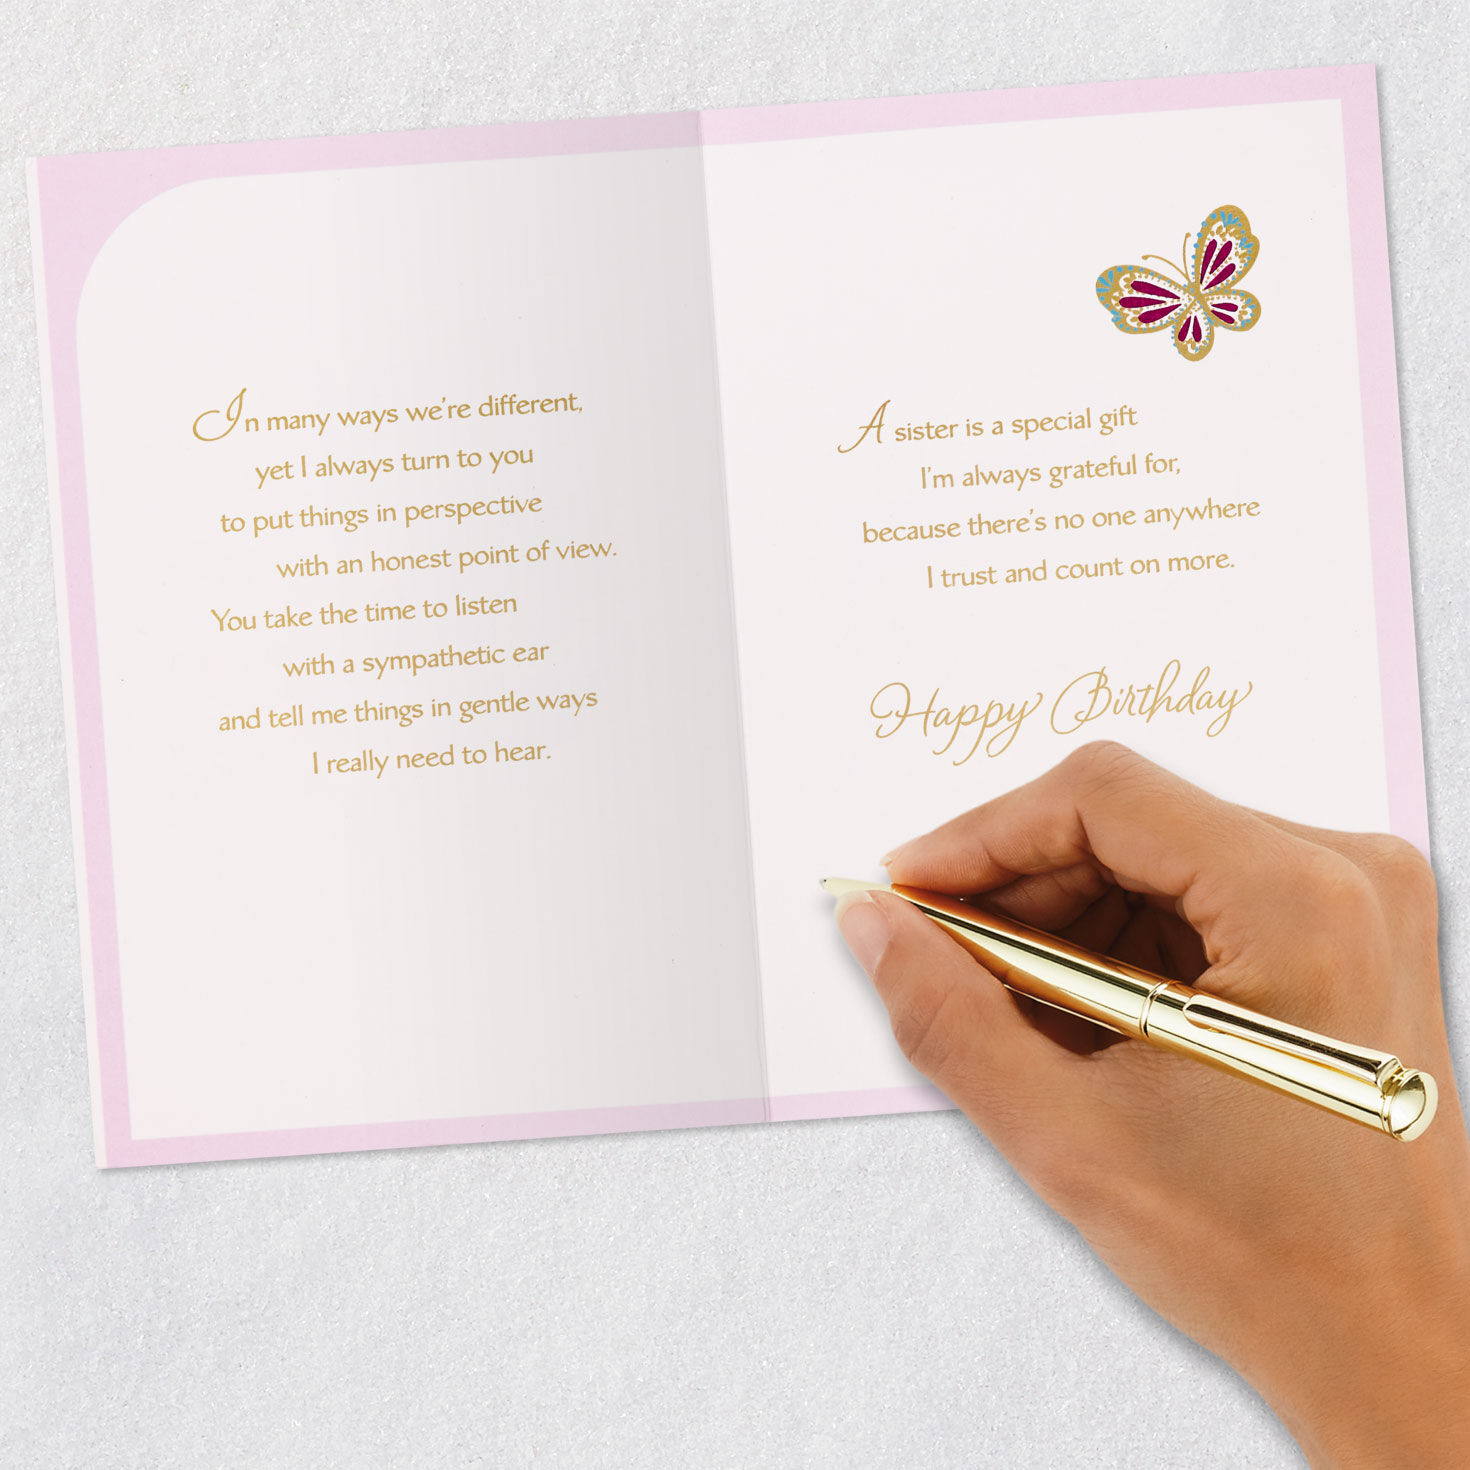 In many ways we're different,
yet I always turn to you
to put things in perspective
with an honest point of view.
You take the time to listen
with a sympathetic ear
and tell me things in gentle ways
I really need to hear.
A sister is a special gift
I'm always grateful for,
because there's no one anywhere
I trust and count on more.
Happy Birthday